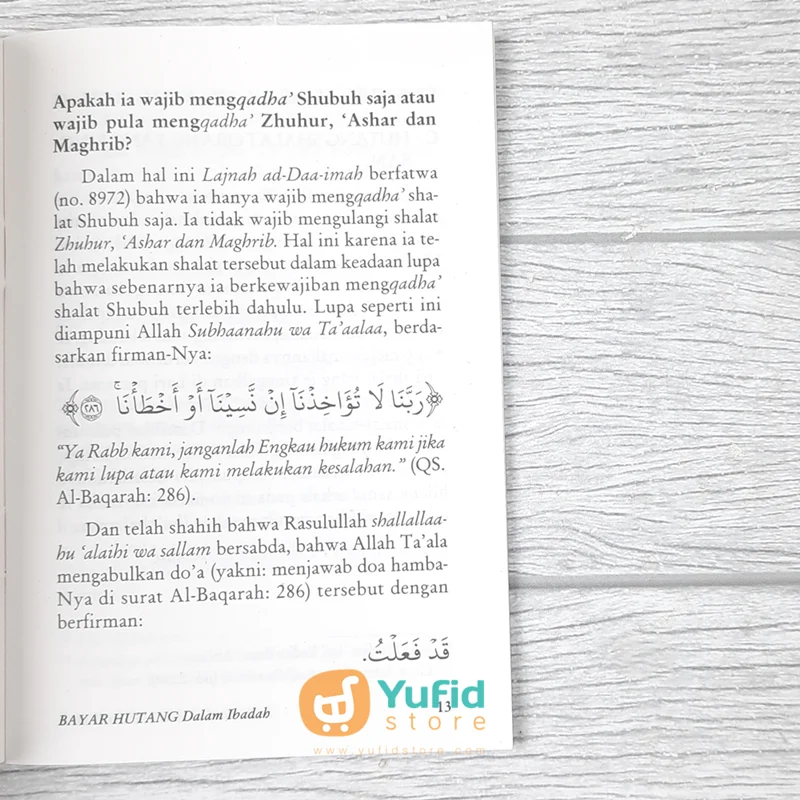 Apakah ia wajib mengqadha’ Shubuh saja atau
wajib pula mengqadha’ Zhuhur, ‘Ashar dan
Maghrib?
Dalam hal ini Lajnah ad-Daa-imah berfatwa
(no. 8972) bahwa ia hanya wajib mengqadha’ sha-
lat Shubuh saja. Ia tidak wajib mengulangi shalat
Zhuhur, ‘Ashar dan Maghrib. Hal ini karena ia te-
lah melakukan shalat tersebut dalam keadaan lupa
bahwa sebenarnya ia berkewajiban mengqadha’
shalat Shubuh terlebih dahulu. Lupa seperti ini
diampuni Allah Subhaanahu wa Ta’aalaa, berda-
sarkan firman-Nya:
﴿رَبَّنَا لَا تُؤَاخِذْنَآ إِن نَّسِينَآ أَوْ أَخْطَأْنَا ۚ ٢٨٦﴾
“Ya Rabb kami, janganlah Engkau hukum kami jika
kami lupa atau kami melakukan kesalahan.” (QS.
Al-Baqarah: 286).
Dan telah shahih bahwa Rasulullah shallallaa-
hu ‘alaihi wa sallam bersabda, bahwa Allah Ta’ala
mengabulkan do’a (yakni: menjawab doa hamba-
Nya di surat Al-Baqarah: 286) tersebut dengan
berfirman:
قَدْ فَعَلْتُ.
BAYAR HUTANG Dalam Ibadah 13
Yufid
store
www.yufidstore.com